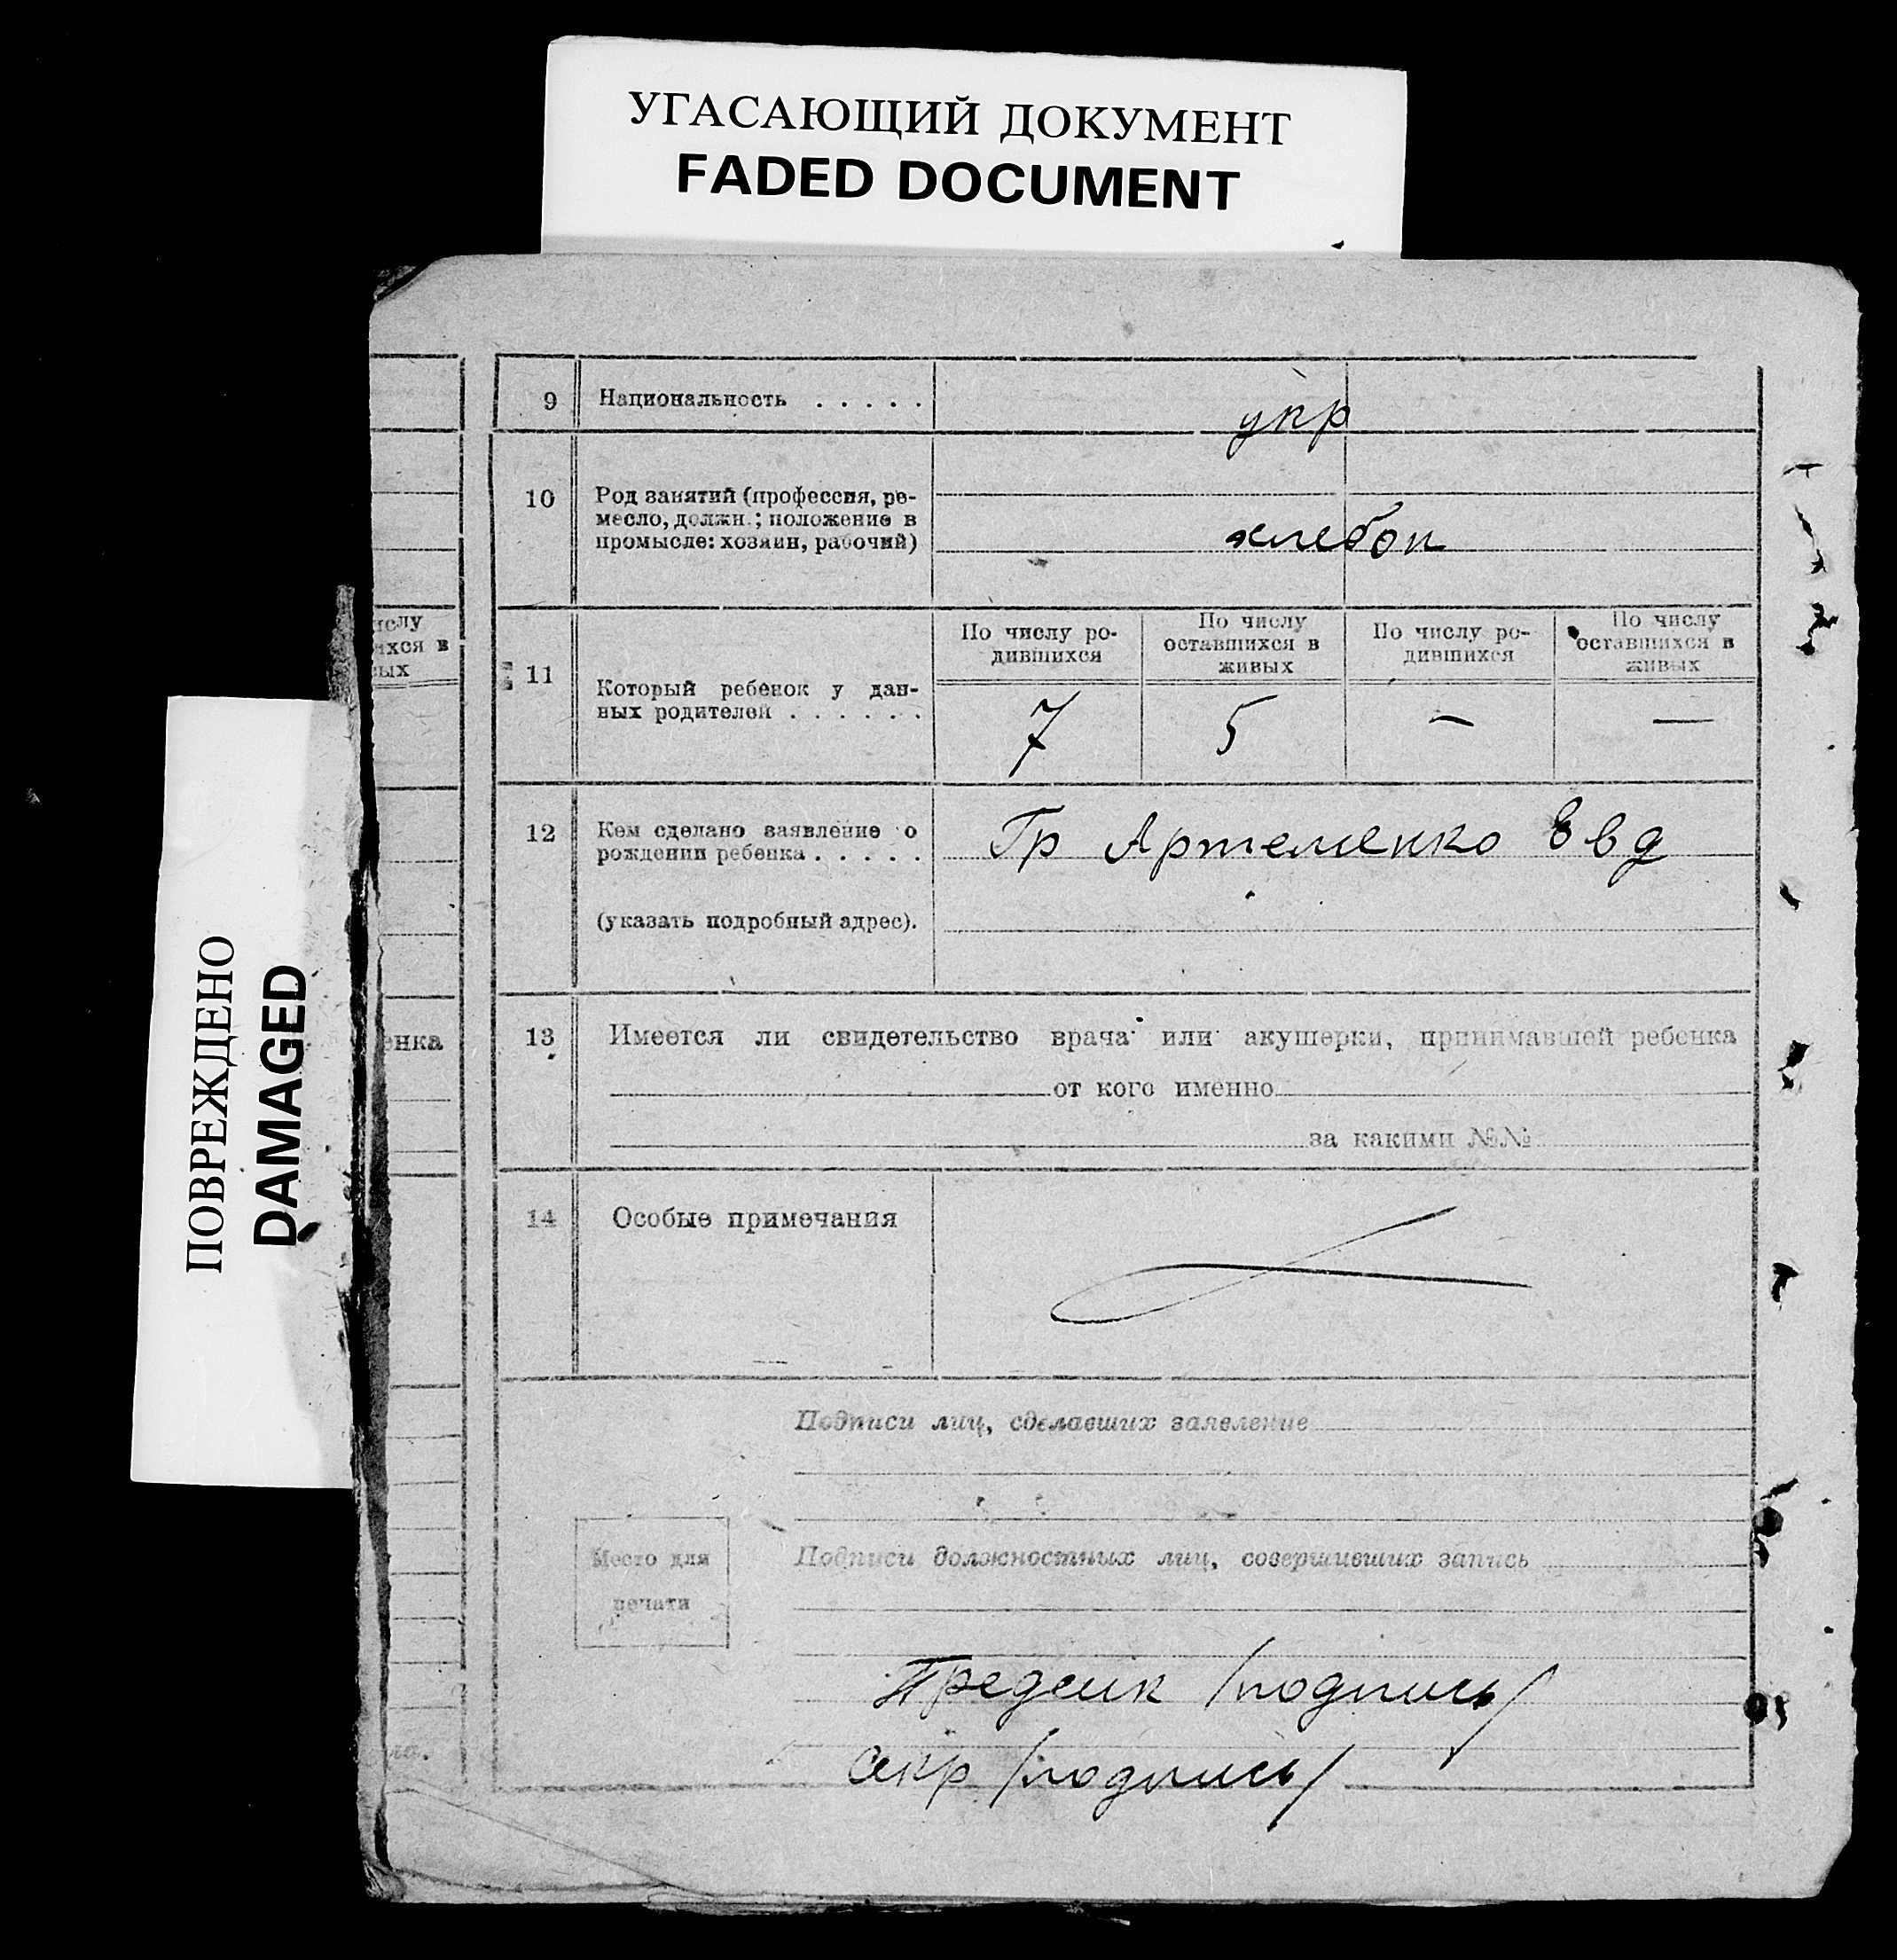 УГАСАЮЩИЙ ДОКУМЕНТ
FADED DOCUMENT
ПОВРЕЖДЕНО
DAMAGED
9 Национальность . . . . . укр
10 Род занятий (профессия, ре-
месло, должн.; положение в
промысле: хозяин, рабочий)
хлебоп
11 Который ребенок у дан-
ных родителей . . . . . .
По числу ро-
дившихся
По числу
оставшихся в
живых
По числу ро-
дившихся
По числу
оставшихся в
живых
7 5 — —
12 Кем сделано заявление о
рождении ребенка . . . . .
Гр Артеменко Евд
(указать подробный адрес).
13 Имеется ли свидетельство врача или акушерки, принимавшей ребенка
от кого именно
за какими №№
14 Особые примечания
Подписи лиц, сделавших заявление
Место для
печати
Подписи должностных лиц, совершивших запись
Предсик /подпись/
Секр /подпись/